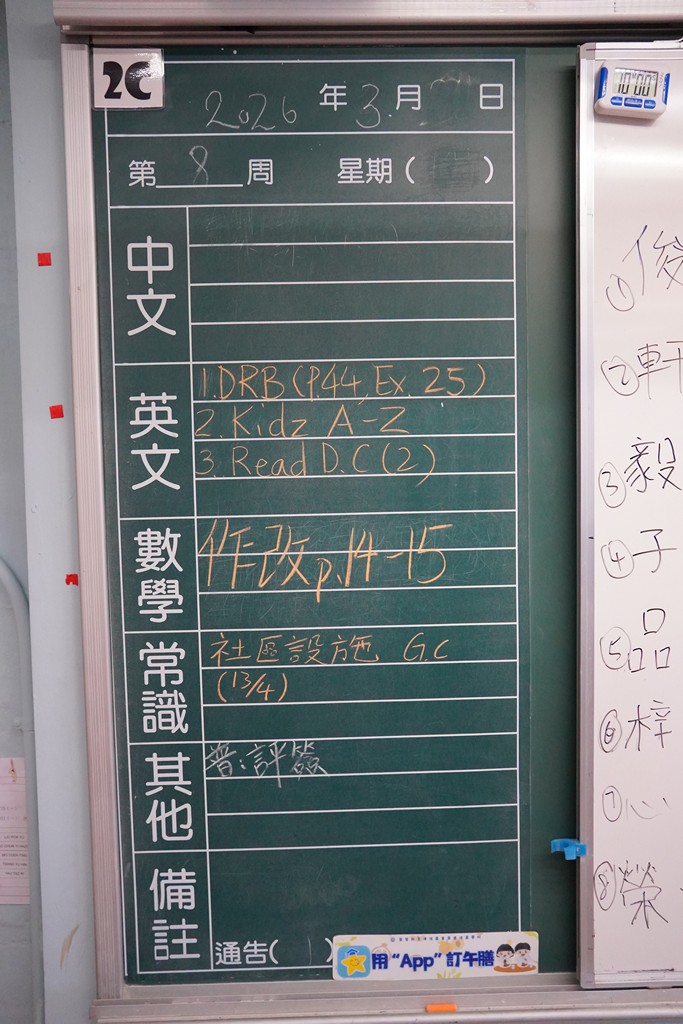 2C
2026 年 3 月 日
第 8 周 星期( )
中文
英文
1. DRB (P.44, Ex. 25)
2. Kidz A-Z
3. Read D.C (2)
數學
作改 p.14-15
常識
社區設施 G.C
(13/4)
其他
普:評簽
備註
通告( )
用“App”訂午膳
10:00
① 俊
② 軒
③ 毅
④ 子
⑤ 品
⑥ 梓
⑦ 心
⑧ 榮